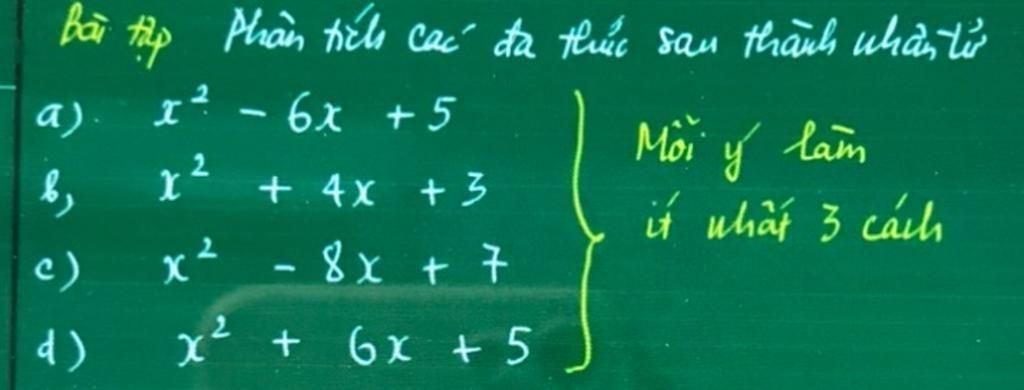 Bài tập Phân tích các đa thức sau thành nhân tử
a) x² - 6x + 5
b, x² + 4x + 3
c) x² - 8x + 7
d) x² + 6x + 5
Mỗi ý làm
ít nhất 3 cách